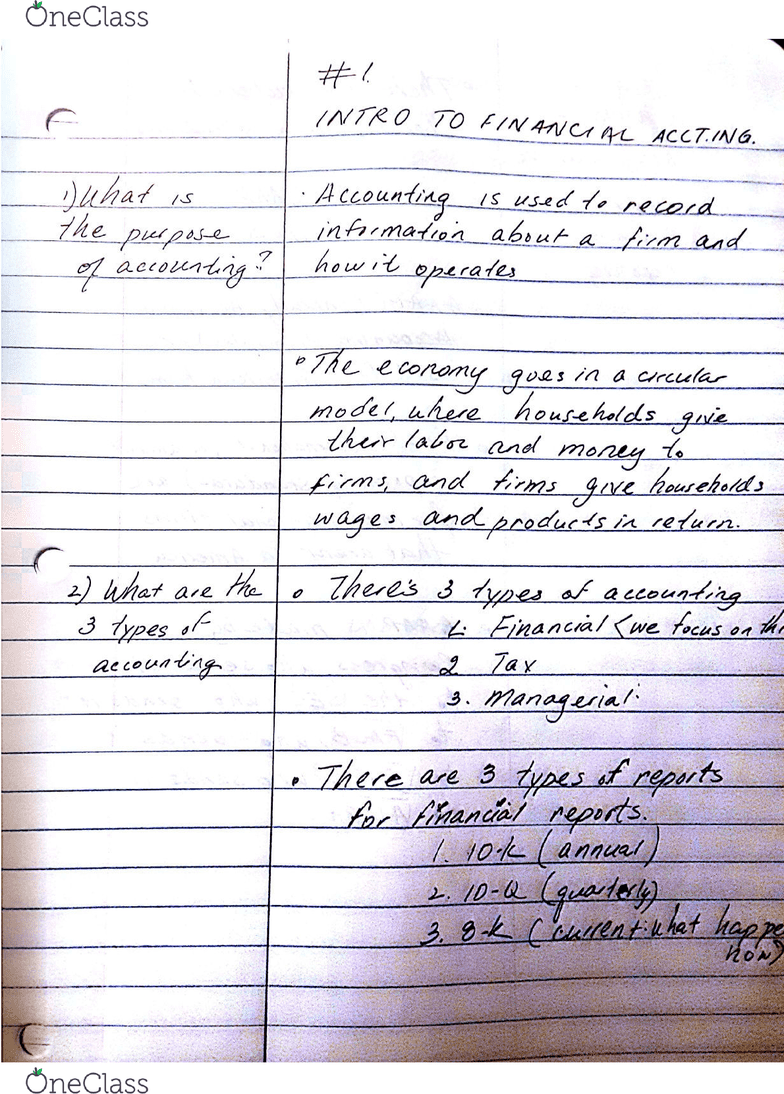 OneClass
#1.
INTRO TO FINANCIAL ACCT.ING.
1) What is
the purpose
of accounting?
· Accounting is used to record
information about a firm and
how it operates
• The economy goes in a circular
model, where households give
their labor and money to
firms, and firms give households
wages and products in return.
2) What are the
3 types of
accounting
• There's 3 types of accounting
1. Financial (we focus on
2. Tax
3. Managerial
• There are 3 types of reports
for financial reports.
1. 10-K (annual)
2. 10-Q (quarterly)
3. 8-K (current: what
now)
OneClass